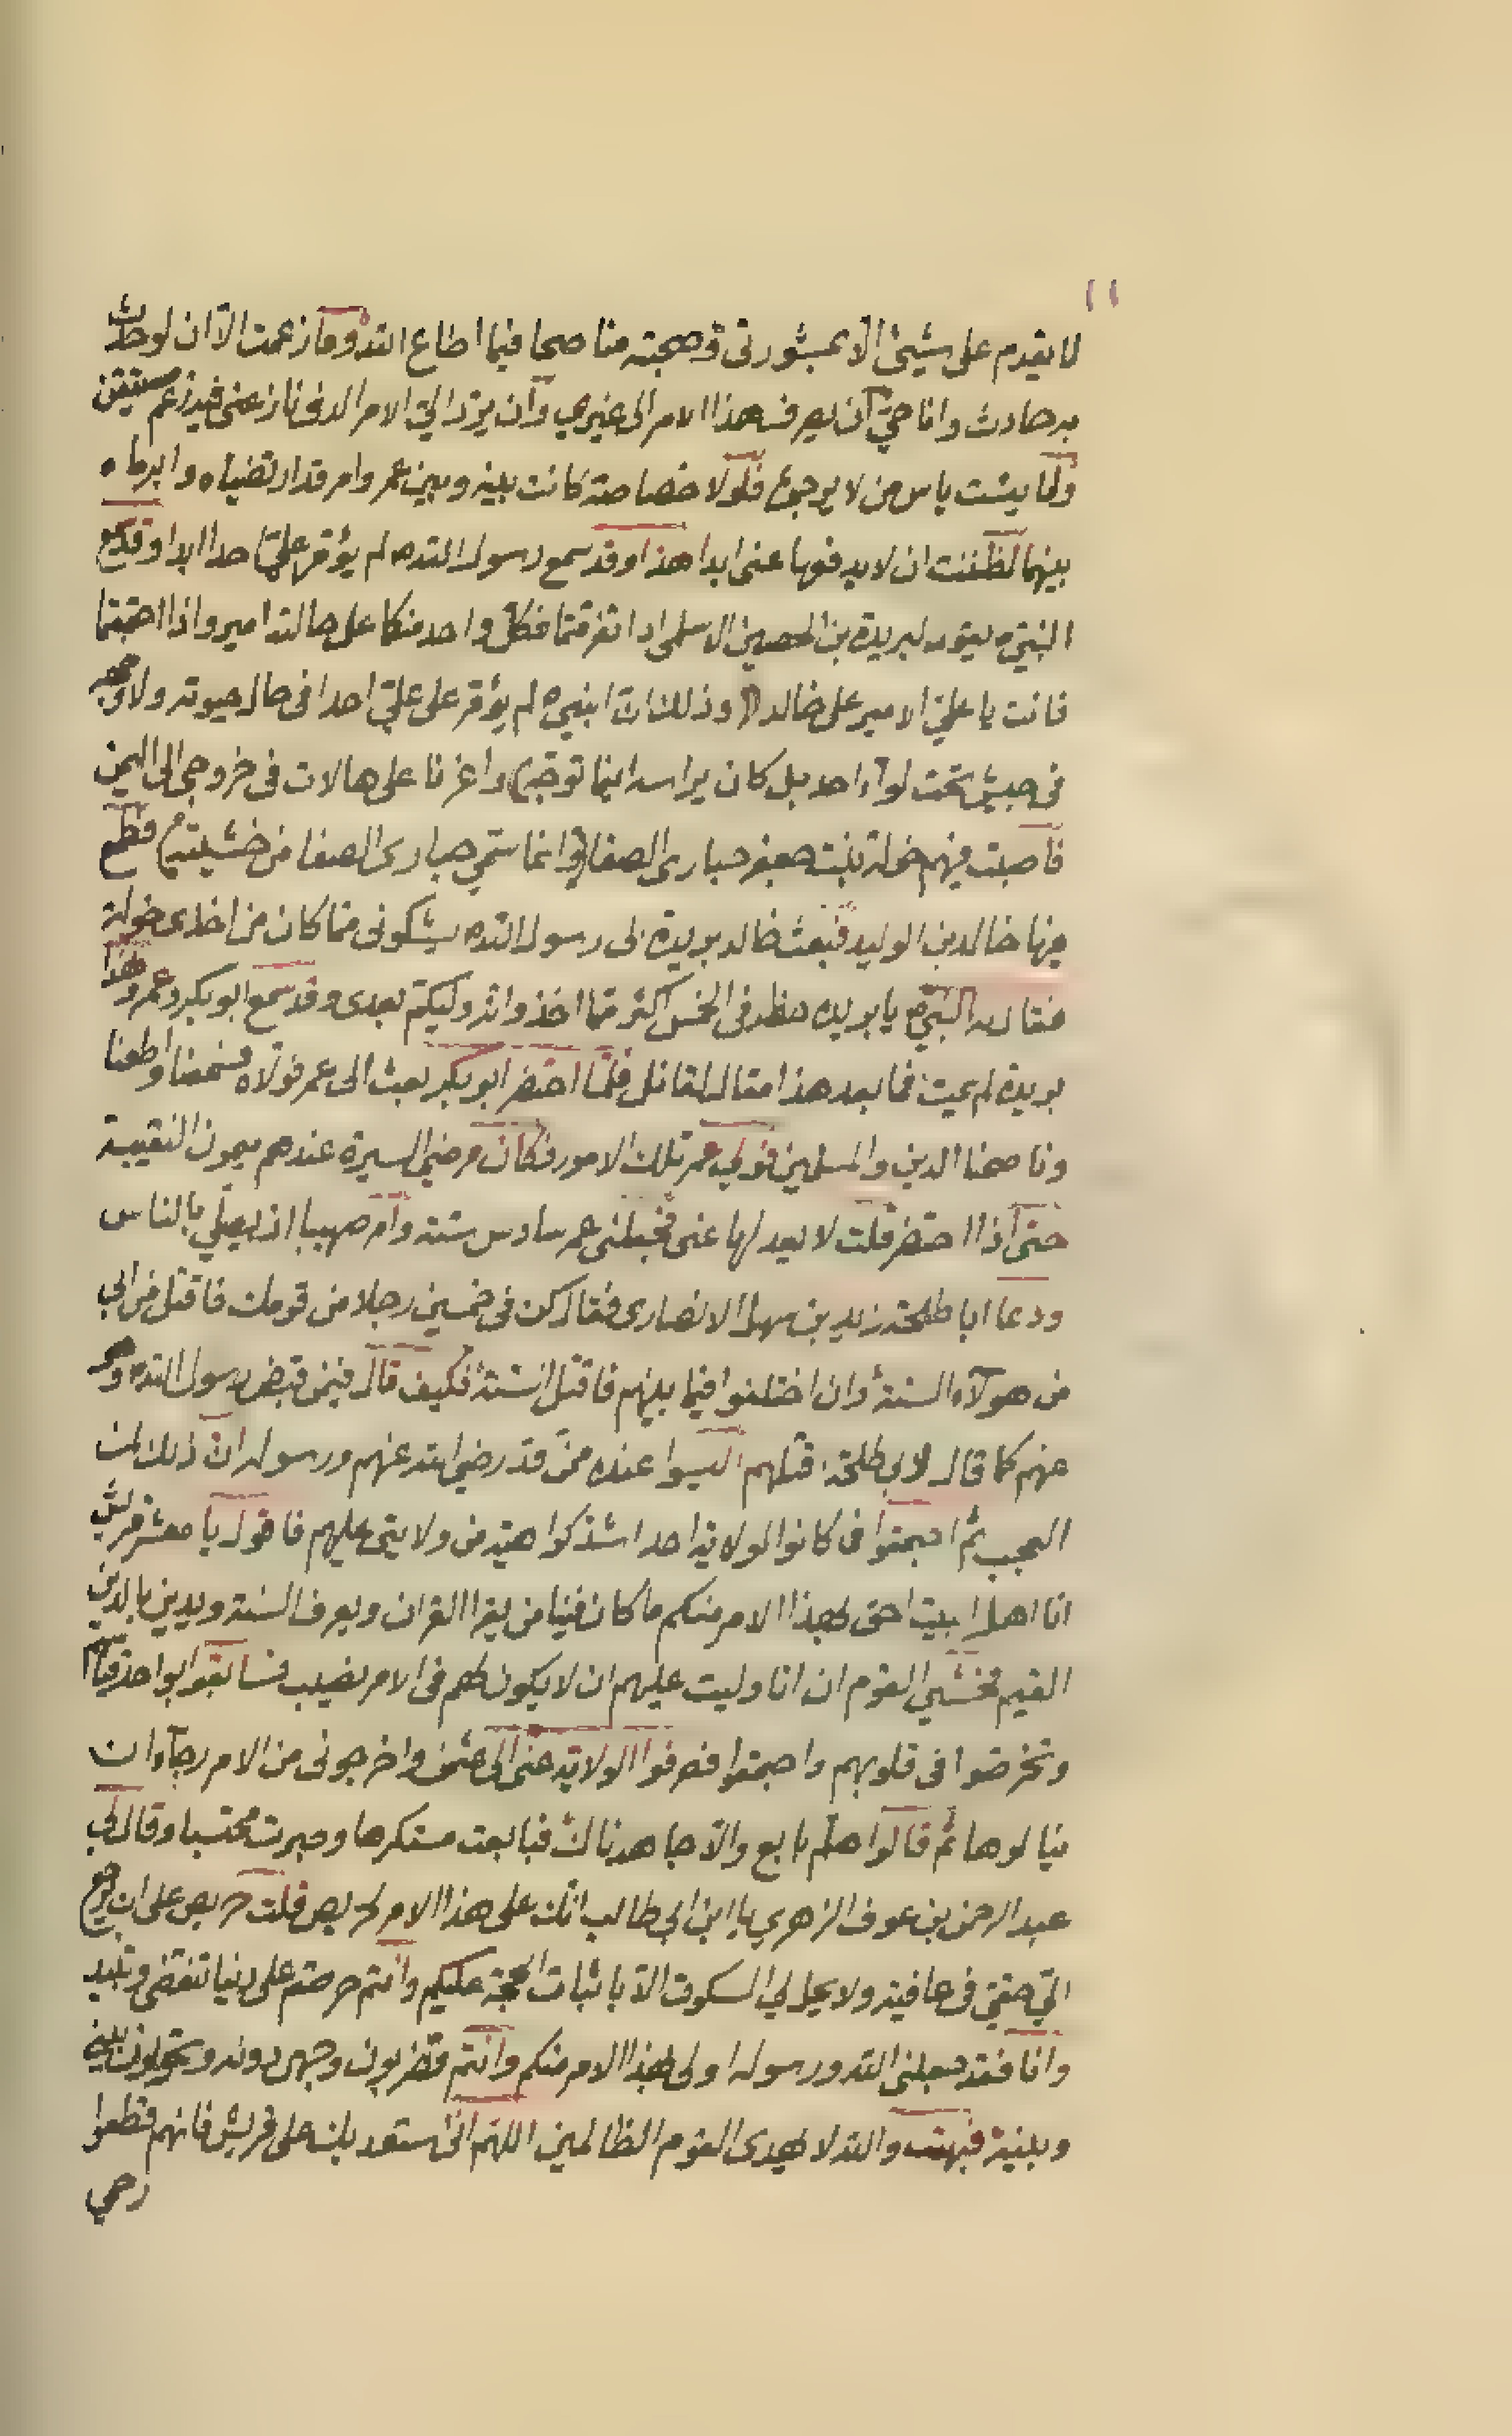 ١١
لا يقدم على شيئ الا بمشورتى فصحبته مناصحا فيما اطاع الله وما زعمت الا ان لو حدث
به حادث وانا حيّ ان يصرف هذا الامر الى غيرى وان يردّ اليّ الامر الذى نازعنى فيه زعم مستيقن
ولما يئست ياس من لا يرجوه فلولا خصاصة كانت بينه وبين عمر وامر قد ارتضياه وابرماه
بينهما لظننت ان لا يدفعها عنى ابدا هذا وقد سمع رسول الله لم يؤمر عليّ احدا ابدا وقد سمع
النبيّ يقول لبريدة بن الحصين الاسلمى اذا تفرقتما فكل واحد منكما على حاله امير واذا اجتمعتما
فانت يا عليّ الامير على خالد وذلك انّ النبي لم يؤمر على عليّ احدا فى حال حيوته ولا
فى جيش تحت لوآء احد بل كان يراسه اينما توجه واغرنا على هالات فى خروجى الى اليمن
فاصبت فيهم خولة بنت جعفر جبارى الصفا وانما سمّي جبارى الصفا من خشيته فطمع
فيها خالد بن الوليد فبعث خالد بريدة الى رسول الله يشكونى مما كان من اخذى خولة
فقال له النبيّ يا بريده حظه فى الخمس اكثر مما اخذ وانه وليكم بعدى وقد سمع ابو بكر وعمر وهذا
بريدة لم يمت فما بعد هذا مقال لقائل فلمّا احتضر ابو بكر بعث الى عمر فولاه فسمعنا واطعنا
وناصحنا الدين والمسلمين فولي عمر تلك الامور فكان مرضي السيرة عندهم ميمون النقيبة
حتى اذا احتضر قلت لا يعدلها عنى فجعلنى عمر سادس ستة وامر صهيبا ان يصلي بالناس
ودعا ابا طلحة زيد بن سهل الانصارى فقال كن فى خمسين رجلا من قومك فاقتل من ابي
من هولآء الستة وان اختلفوا فيما بينهم فاقتل الستة فكيف قال فيمن قبض رسول الله وهو
عنهم كما قال لابى طلحة اقتلهم اليسوا عنده ممن قد رضي الله عنهم ورسوله ان ذلك لمن
العجب ثم اجتمعوا فما كانوا لولاية احد اشد كراهية من ولايتى عليهم فاقول يا معشر قريش
انا اهل البيت احق بهذا الامر منكم ما كان فينا من يقرا القران ويعرف السنة ويدين بالدين
القيم فخشي القوم ان انا وليت عليهم ان لا يكون لهم فى الامر نصيب فسابقوا بواحد فيما بينهم
وتخرصوا فى قلوبهم واجمعوا فصرفوا الولاية عنى الى عثمن واخرجونى من الامر رجآء ان
ينالوها ثم قالوا هلم بايع والا جاهدناك فبايعت مستكرها وصبرت محتسبا وقال لي
عبد الرحمن بن عوف الزهري يا ابن ابي طالب انك على هذا الامر لحريص فقلت حريص على ان يرجع
اليّ حقي فى عافية ولا يحل لي السكوت الا باثبات الحجة عليكم وانتم حرصتم على دنيا تنقضى وتبيد
وانا فقد جعلنى الله ورسوله اولى بهذا الامر منكم وانتم تضربون وجهى دونه وتحولون بينى
وبينه فبهتت والله لا يهدى القوم الظالمين اللهم انى استعديك على قريش فانهم قطعوا
رحمي